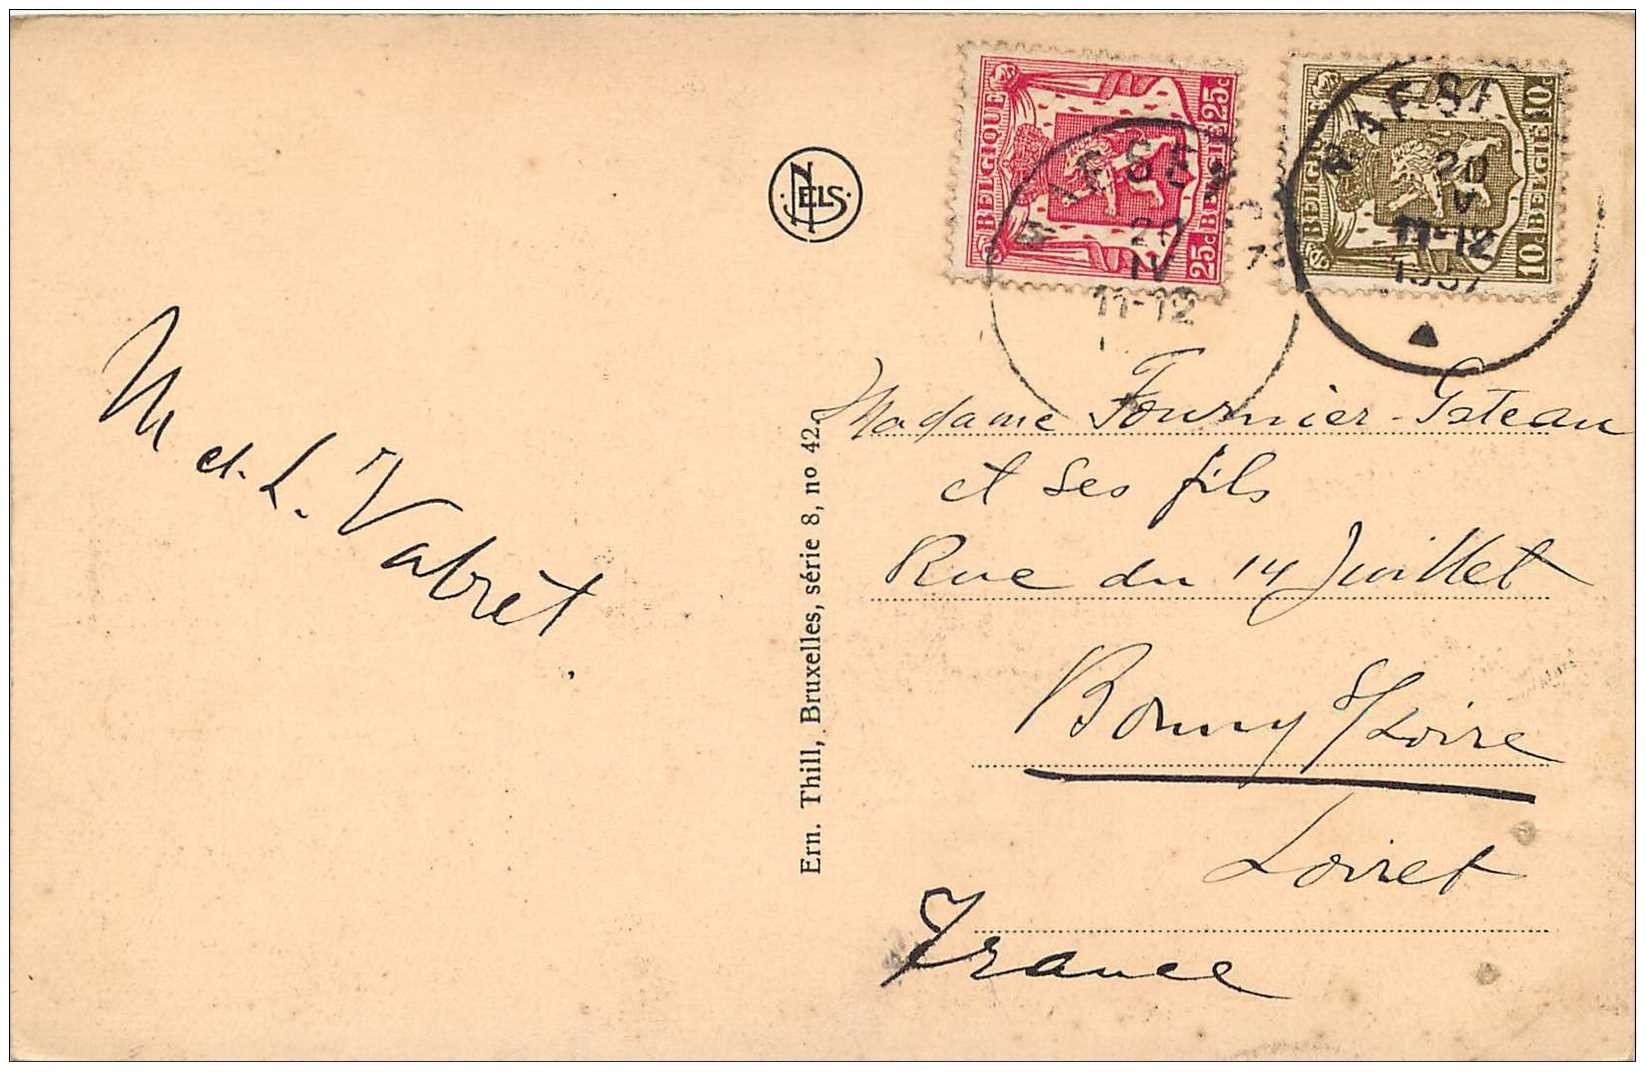 NELS
BELGIQUE 25c
25c BELGIË
BELGIQUE 10c
10c BELGIË
20
IV
11-12
20
11-12
1937
M et L. Vabrèt.
Ern. Thill, Bruxelles, série 8, no 42.
Madame Fournier-Gateau
et ses fils
Rue du 14 Juillet
Bonny s/Loire
Loiret
France